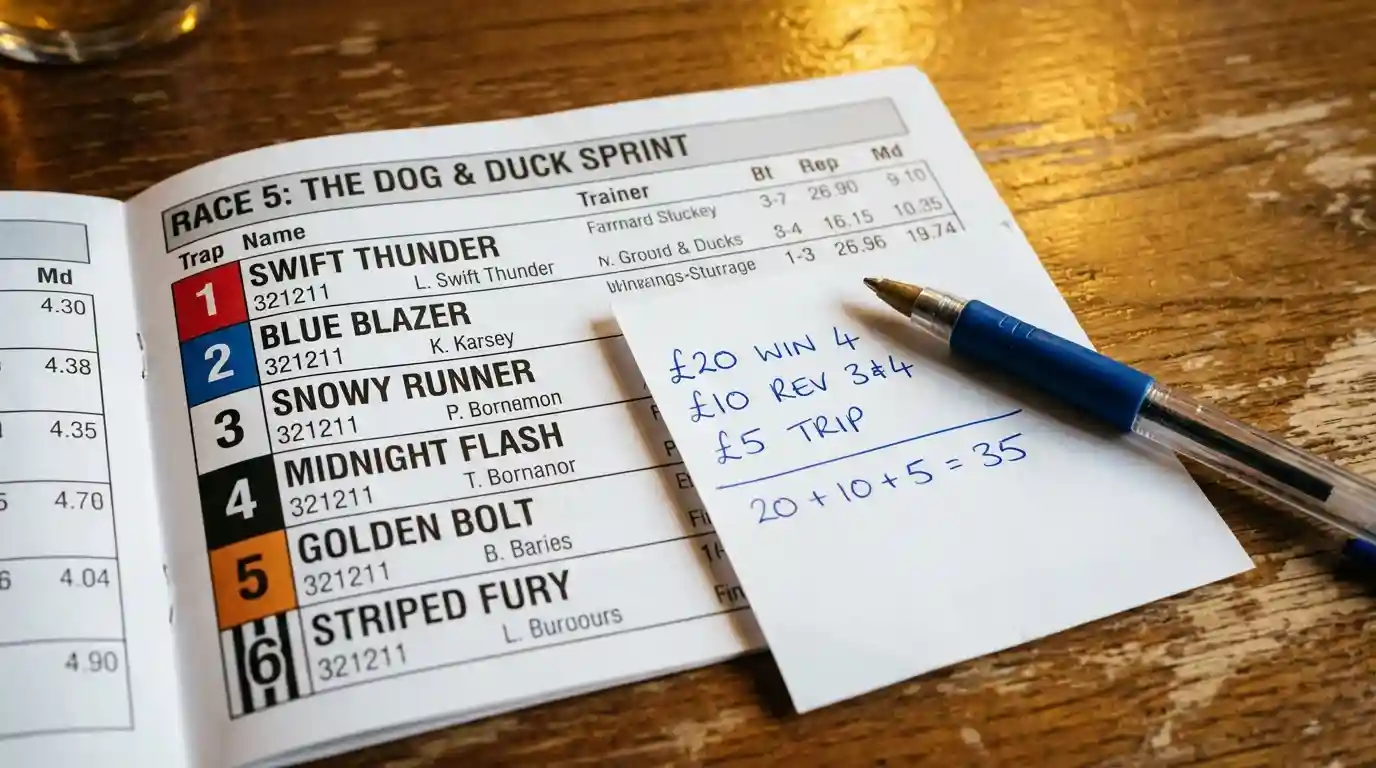 Md
4.30
4.38
4.35
4.70
4.04
4.90
RACE 5: THE DOG & DUCK SPRINT
Trap Name Trainer Bt Rep Md
1 SWIFT THUNDER 3-7 26.90 9.10
321211 L. Swift Thunder N. Groord & Ducks 3-4 16.15 10.35
2 BLUE BLAZER 1-3 26.96 19.74
321211 K. Karsey
3 SNOWY RUNNER
321211 P. Bornemon
4 MIDNIGHT FLASH
321211 T. Bornanor
5 GOLDEN BOLT
321211 B. Baries
6 STRIPED FURY
321211 L. Buroours
£20 WIN 4
£10 REV 3&4
£5 TRIP
20 + 10 + 5 = 35